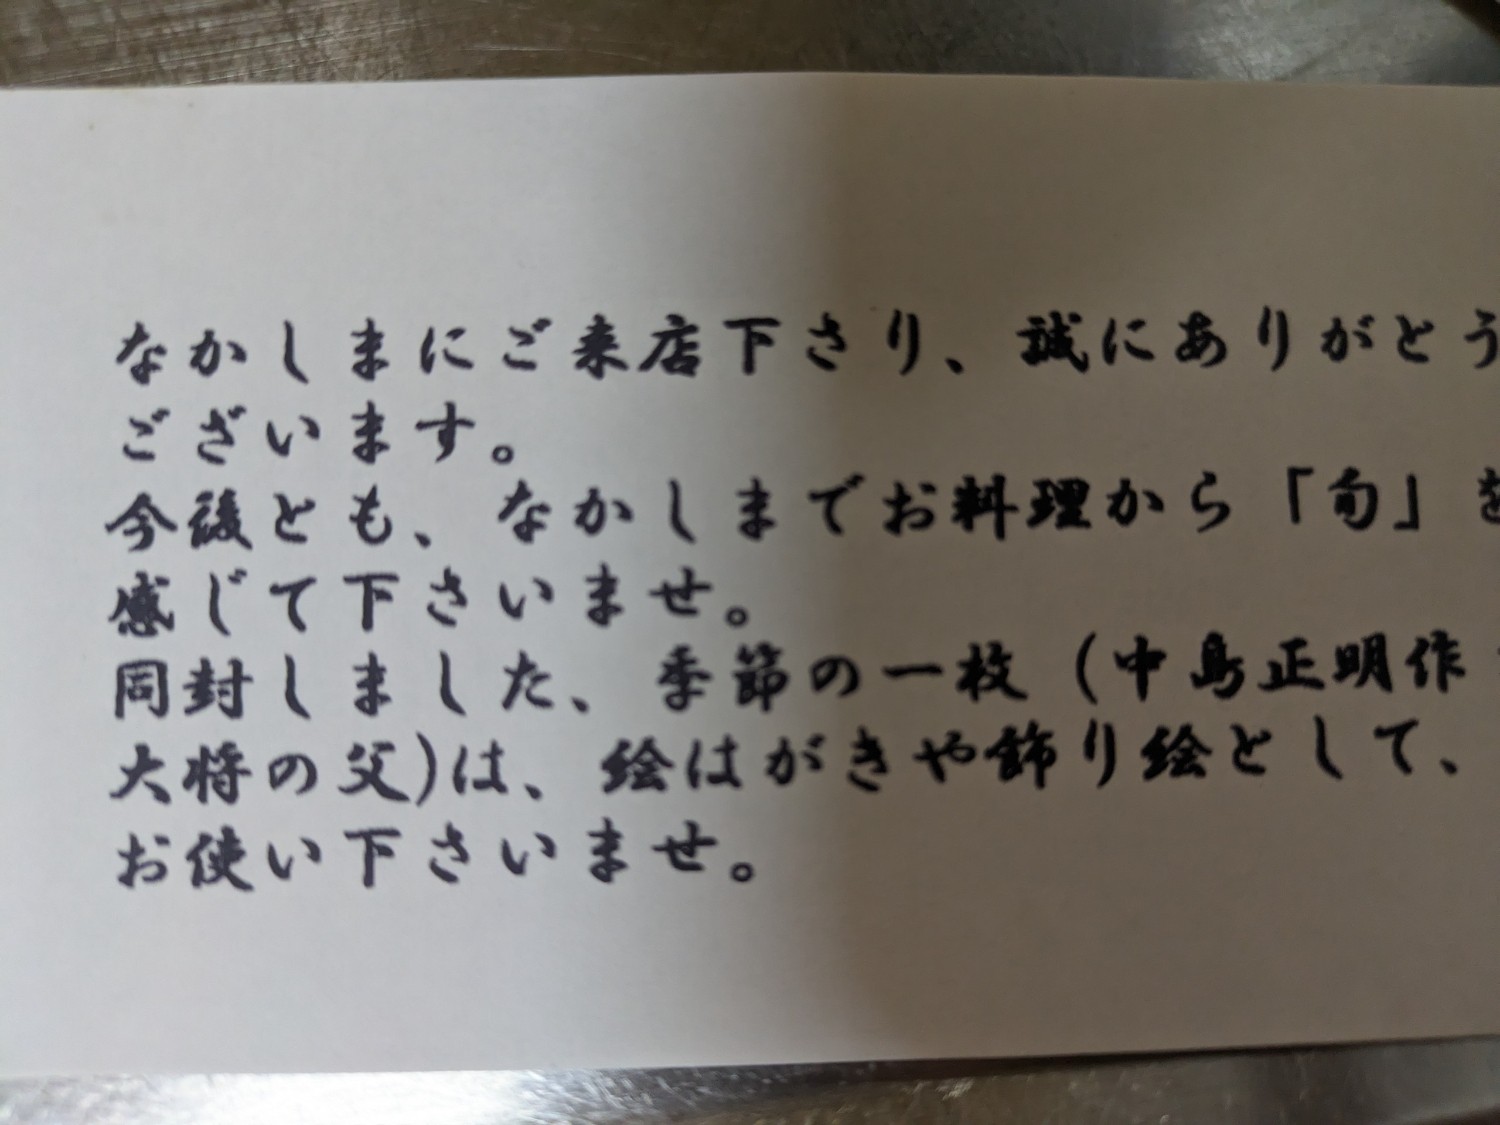 なかしまにご来店下さり、誠にありがとう
ございます。
今後とも、なかしまでお料理から「旬」を
感じて下さいませ。
同封しました、季節の一枚（中島正明作
大将の父）は、絵はがきや飾り絵として、
お使い下さいませ。